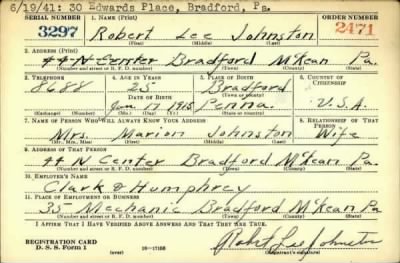 6/19/41: 30 Edwards Place, Bradford, Pa.
SERIAL NUMBER 1. NAME (Print) ORDER NUMBER
3297 Robert Lee Johnston 2471
(First) (Middle) (Last)
2. ADDRESS (Print)
44 N Center Bradford McKean Pa.
(Number and street or R. F. D. number) (Town) (County) (State)
3. TELEPHONE 4. AGE IN YEARS 5. PLACE OF BIRTH 6. COUNTRY OF CITIZENSHIP
8688 25 Bradford
(Town or county)
DATE OF BIRTH
Jan 17 1915 Penna. U.S.A.
(Exchange) (Number) (Mo.) (Day) (Yr.) (State or country)
7. NAME OF PERSON WHO WILL ALWAYS KNOW YOUR ADDRESS 8. RELATIONSHIP OF THAT PERSON
Mrs. Marion Johnston Wife
(Mr., Mrs., Miss) (First) (Middle) (Last)
9. ADDRESS OF THAT PERSON
44 N Center Bradford McKean Pa.
(Number and street or R. F. D. number) (Town) (County) (State)
10. EMPLOYER'S NAME
Clark & Humphrey
11. PLACE OF EMPLOYMENT OR BUSINESS
35 Mechanic Bradford McKean Pa
(Number and street or R. F. D. number) (Town) (County) (State)
I AFFIRM THAT I HAVE VERIFIED ABOVE ANSWERS AND THAT THEY ARE TRUE.
REGISTRATION CARD
D. S. S. Form 1 16—17105 Robert Lee Johnston
(Registrant's signature)